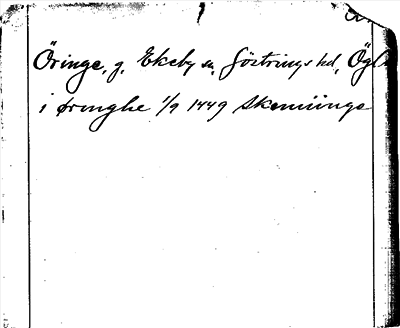 Öringe, g. Ekeby sn, Göstrings hd, Ögl
i ørmghe 1/9 1449 Skeninge